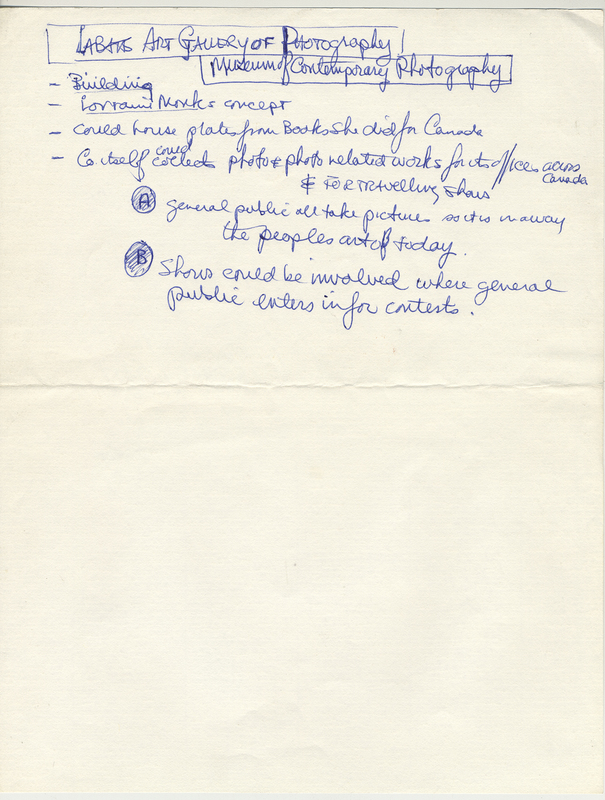 LABATTS ART GALLERY OF PHOTOGRAPHY
Museum of Contemporary Photography
- Building
- Lorraine Monks concept
- could house plates from Books She did for Canada
- Co itself could collects photo & photo related works for its offices across Canada
& FOR TRAVELLING Shows
A general public all take pictures so it is in a way
the peoples art of today.
B Shows could be involved where general
public enters in for contests.